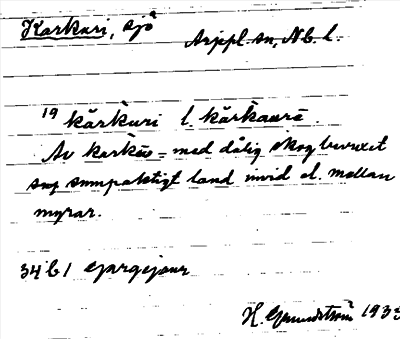 Karkuri, sjö
Arjepl. sn, Nb. l.
19 kārkuri l. kārkaurē.
Av karkēs = med dålig skog bevuxet
sumpaktigt land invid el. mellan
myrar.
34 b 1
H. Grundström 1933